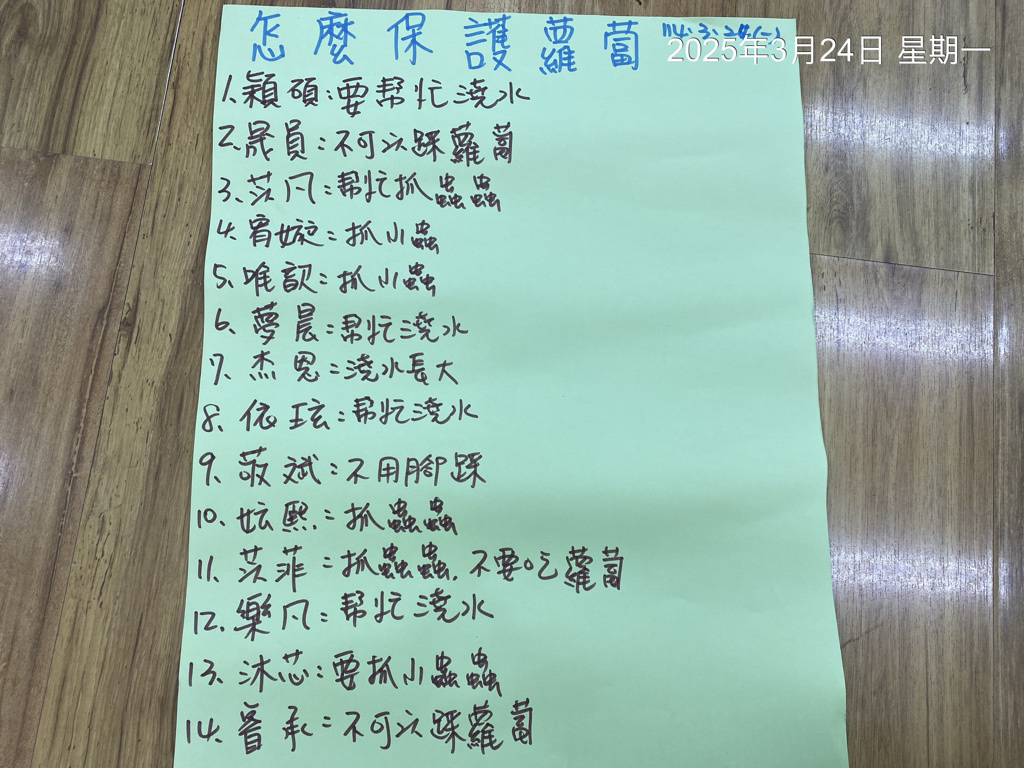 怎麼保護蘿蔔 114.3.24(一)
2025年3月24日 星期一
1.穎碩:要幫忙澆水
2.晟員:不可以踩蘿蔔
3.苡凡:幫忙抓蟲蟲
4.宥嫙:抓小蟲
5.唯歆:抓小蟲
6.夢晨:幫忙澆水
7.杰恩:澆水長大
8.依玹:幫忙澆水
9.荍斌:不用腳踩
10.妘熙:抓蟲蟲
11.苡菲:抓蟲蟲,不要吃蘿蔔
12.樂凡:幫忙澆水
13.沐芯:要抓小蟲蟲
14.承:不可以踩蘿蔔